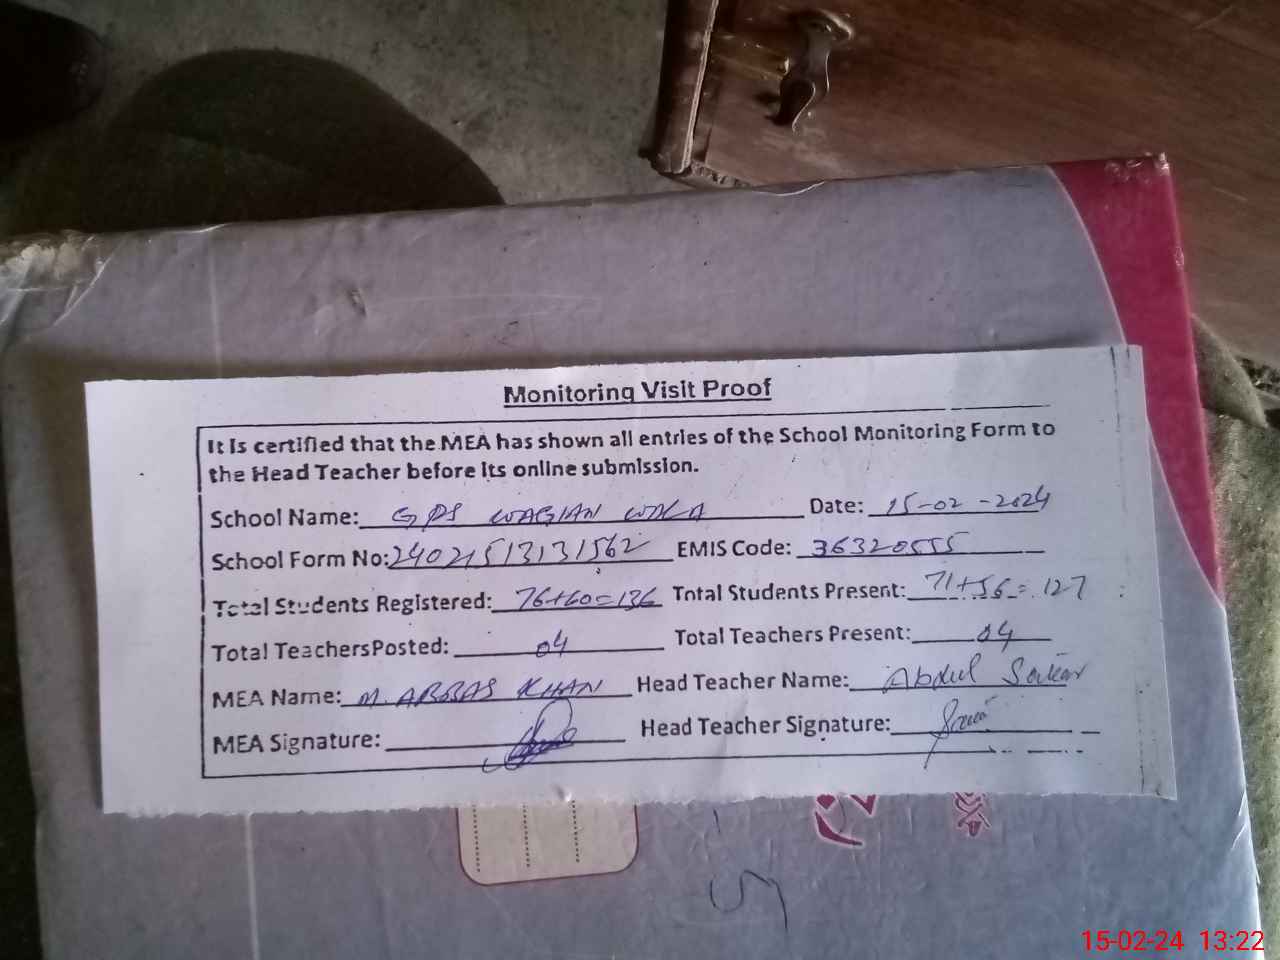 Monitoring Visit Proof
It is certified that the MEA has shown all entries of the School Monitoring Form to
the Head Teacher before its online submission.
School Name: GPS WAGIAN WALA Date: 15-02-2024
School Form No: 24021513131562 EMIS Code: 36320555
Total Students Registered: 76+60=136 Total Students Present: 71+56=127
Total Teachers Posted: 04 Total Teachers Present: 04
MEA Name: M. ABBAS KHAN Head Teacher Name: Abdul
MEA Signature: Head Teacher Signature:
15-02-24 13:22